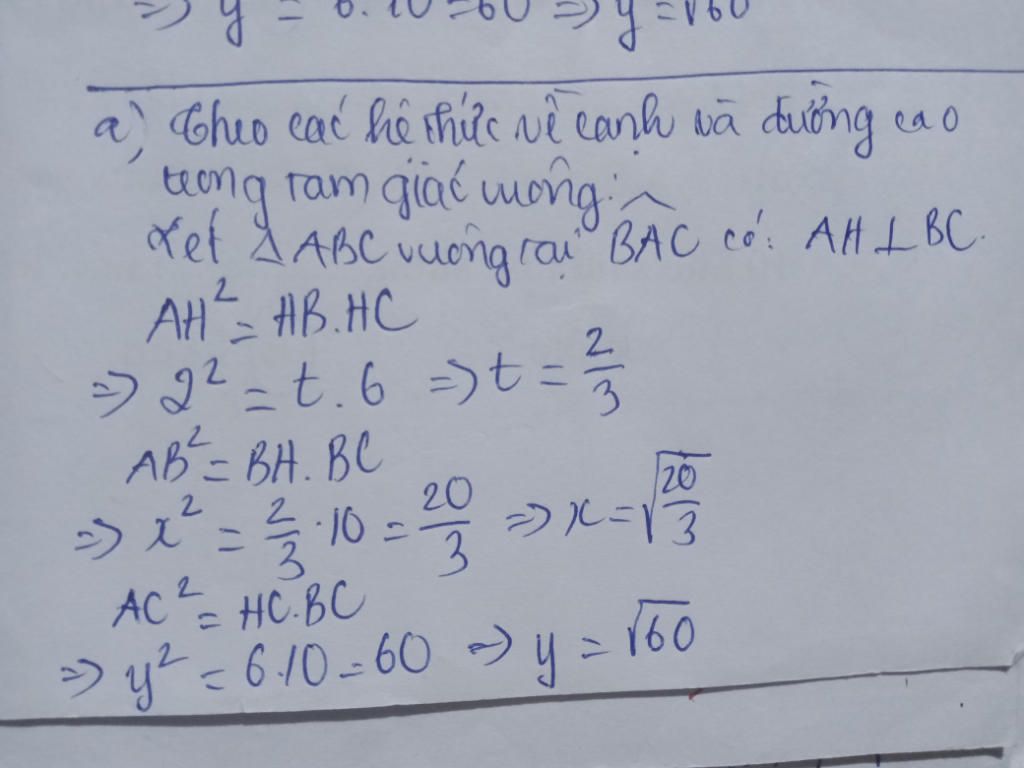 => y = 6.10 = 60 => y = √60
a) Theo các hệ thức về cạnh và đường cao
trong tam giác vuông:
Xét △ABC vuông tại BAC có: AH ⊥ BC.
AH² = HB.HC
=> 2² = t . 6 => t = 2/3
AB² = BH . BC
=> x² = 2/3 · 10 = 20/3 => x = √(20/3)
AC² = HC.BC
=> y² = 6.10 = 60 => y = √60